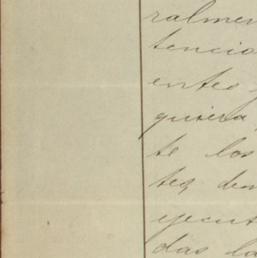 ralmen
tencio
entes
quiera
te los
tes dem
ejecut
das la